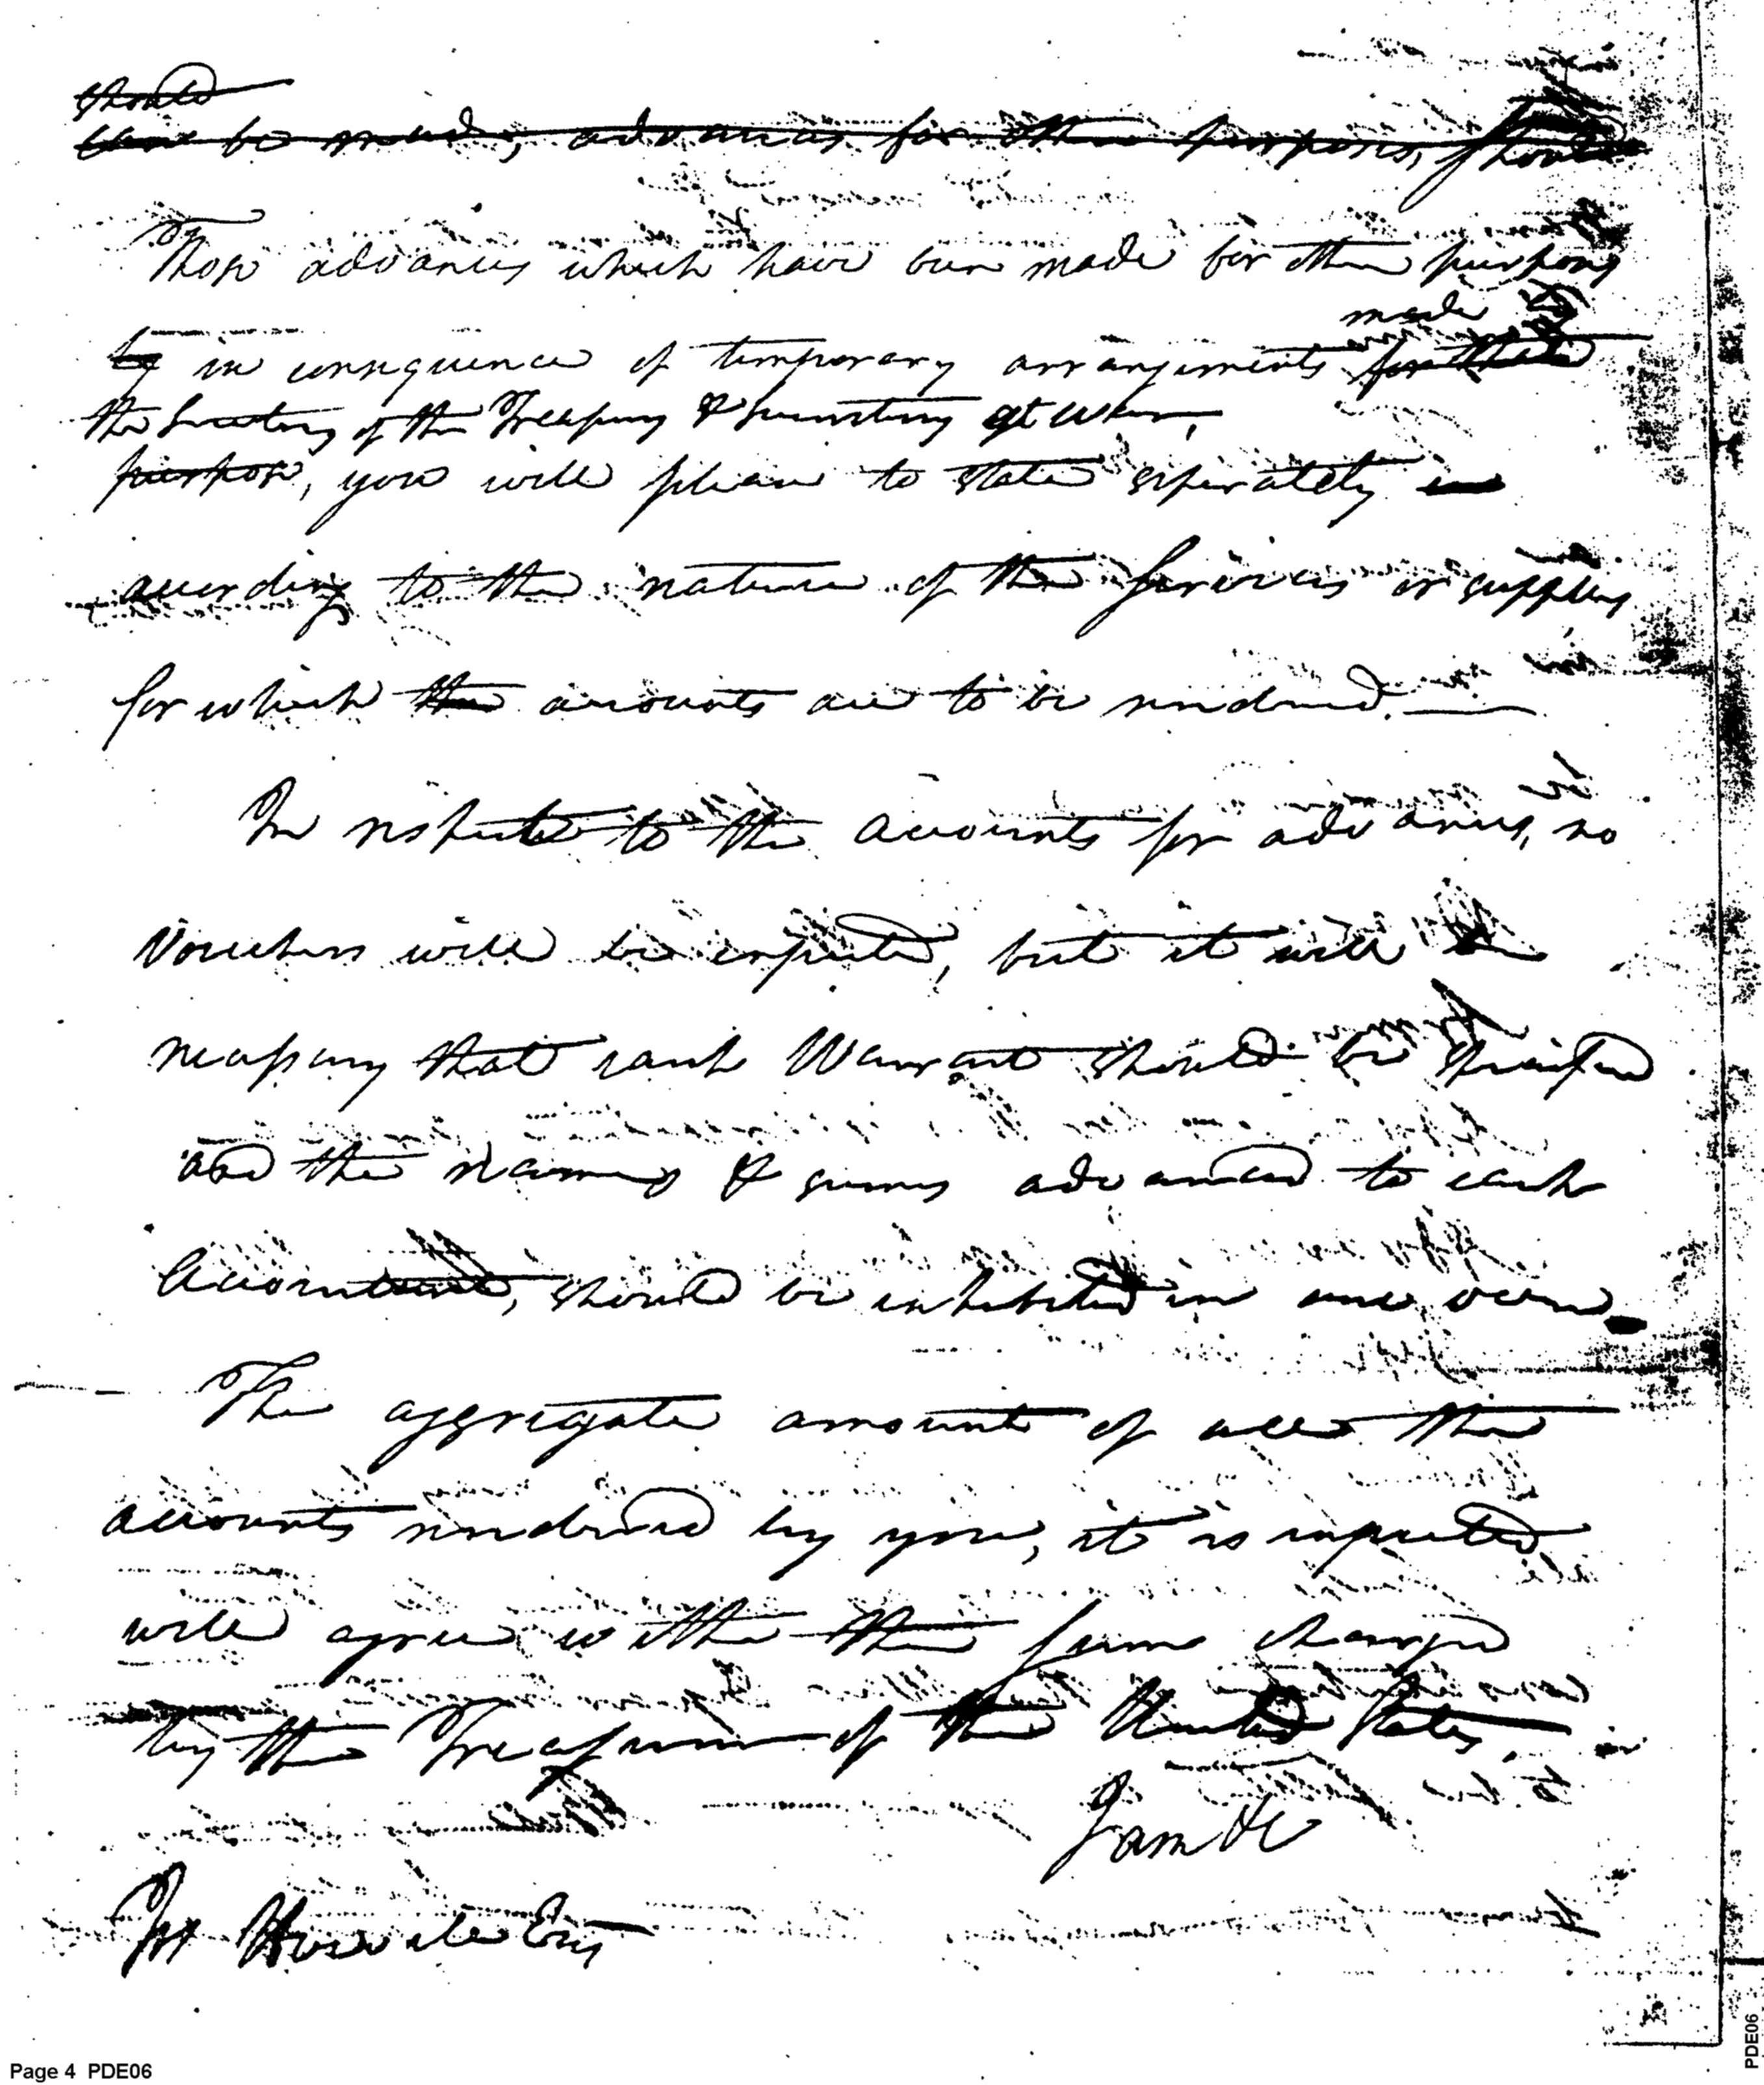 should
have be made, advances for other purposes, should
Those advances which have been made for other purposes
made by
by in consequence of temporary arrangements for that
the Secretary of the Treasury & Secretary at War,
purpose, you will please to state seperately in
according to the nature of the services or supplies
for which the accounts are to be rendered.
In respect to the accounts for advances, no
Vouchers will be expected, but it will be
necessary that each Warrant should be specified
and the names & sums advanced to each
Accountant, should be exhibited in one view
The aggregate amount of all the
accounts rendered by you, it is expected
will agree with the sum charged
by the Treasurer of the United States.
I am &c
Jos Howell Esq
Page 4 PDE06
PDE06